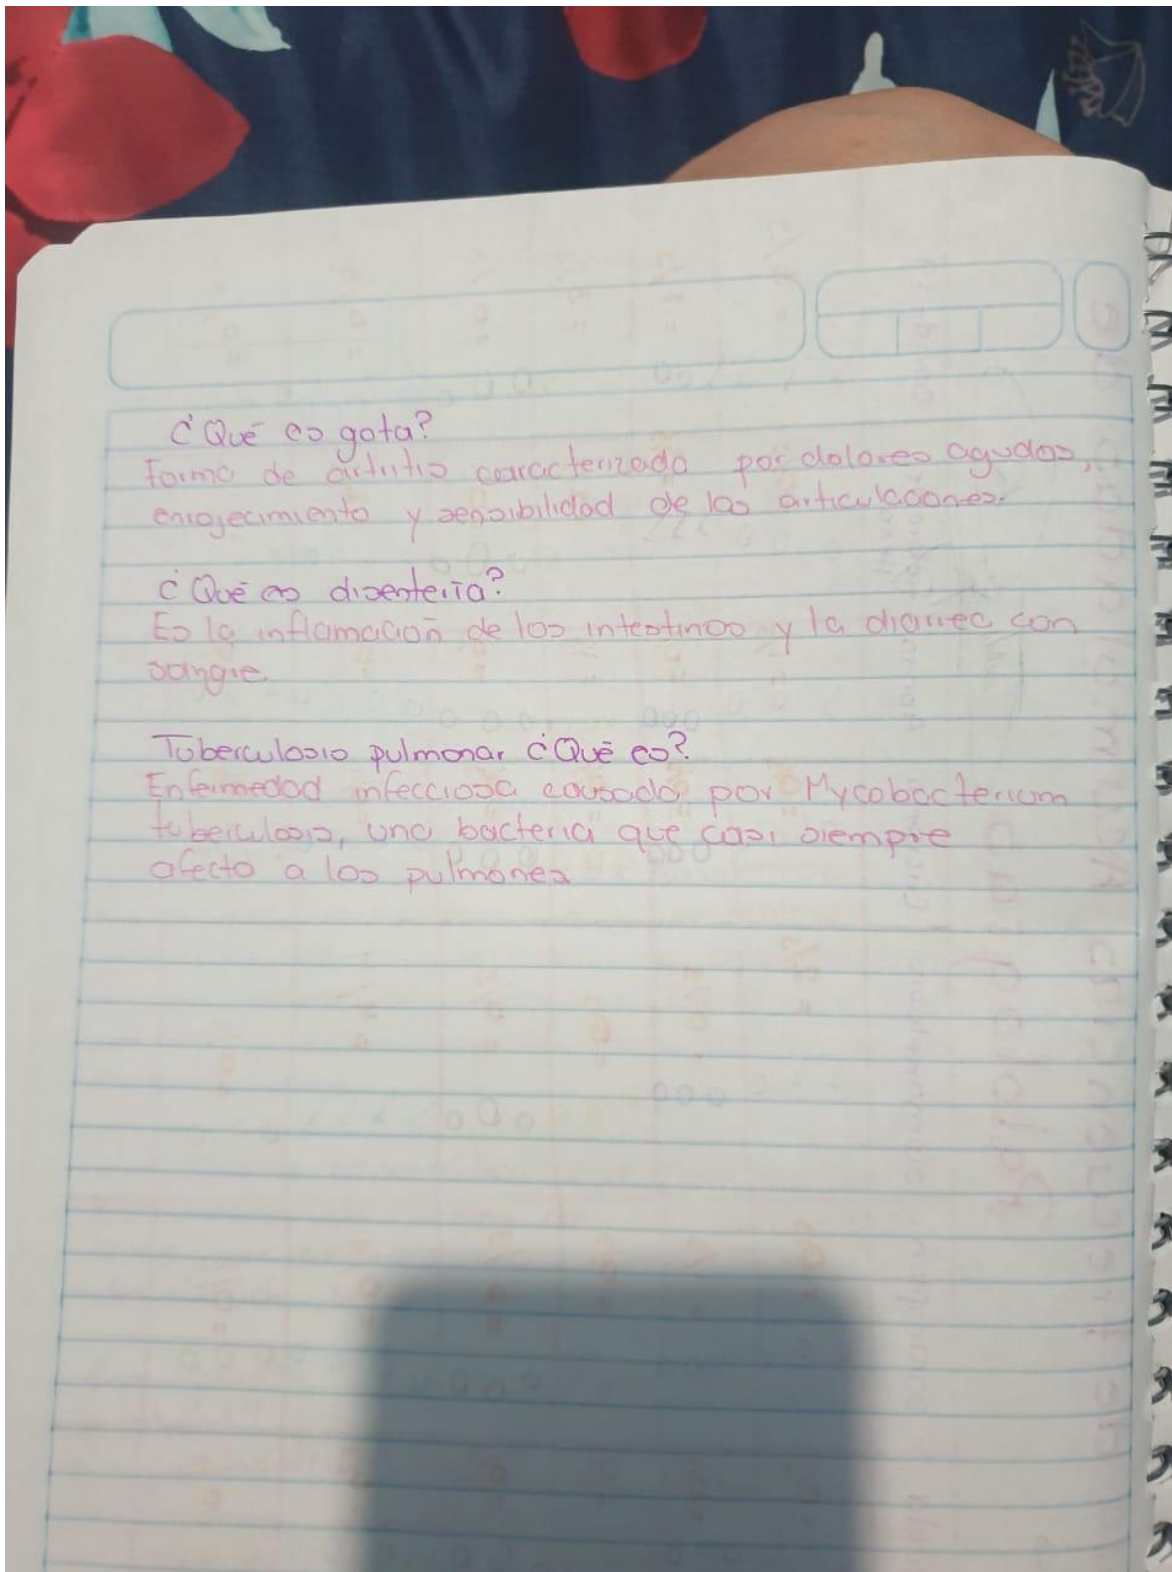 ¿Qué es gota?
Forma de artritis caracterizada por dolores agudos,
enrojecimiento y sensibilidad de las articulaciones.
¿Qué es disentería?
Es la inflamación de los intestinos y la diarrea con
sangre.
Tuberculosis pulmonar ¿Qué es?
Enfermedad infecciosa causada por Mycobacterium
tuberculosis, una bacteria que casi siempre
afecta a los pulmones